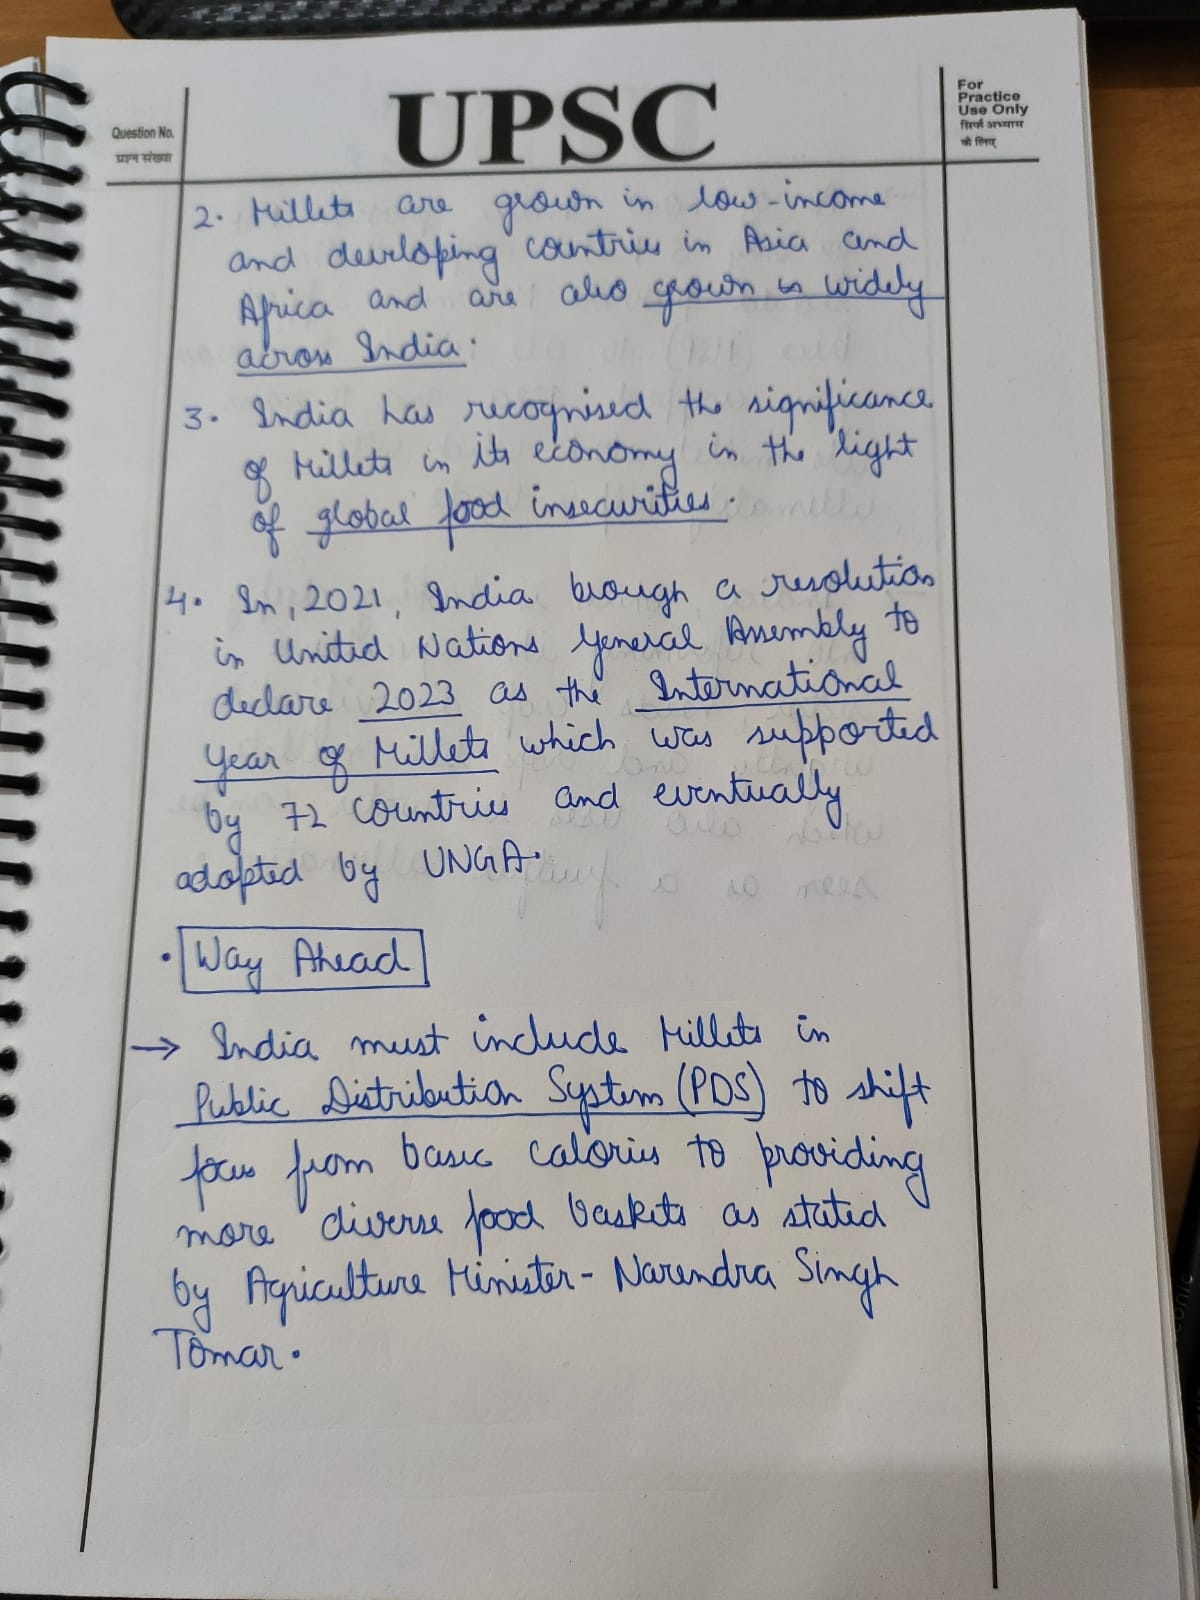 UPSC
Question No.
प्रश्न संख्या
For
Practice
Use Only
सिर्फ अभ्यास
के लिए
2. Millets are grown in low-income
and developing countries in Asia and
Africa and are also grown widely
across India.
3. India has recognised the significance
of Millets in its economy in the light
of global food insecurities.
4. In, 2021, India brough a resolution
in United Nations General Assembly to
declare 2023 as the International
Year of Millets which was supported
by 72 countries and eventually
adopted by UNGA.
• Way Ahead
→ India must include Millets in
Public Distribution System (PDS) to shift
focus from basic calories to providing
more diverse food baskets as stated
by Agriculture Minister- Narendra Singh
Tomar.